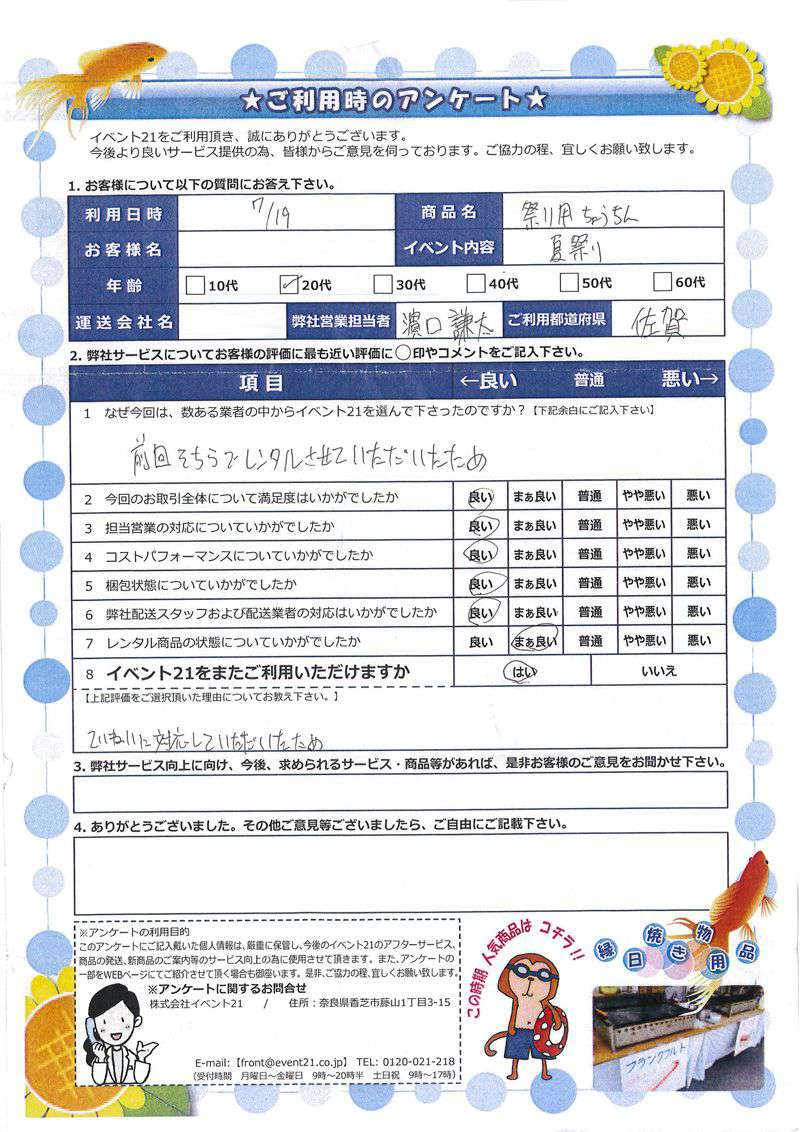 ★ご利用時のアンケート★
イベント21をご利用頂き、誠にありがとうございます。
今後より良いサービス提供の為、皆様からご意見を伺っております。ご協力の程、宜しくお願い致します。
1. お客様について以下の質問にお答え下さい。
利用日時 7/19 商品名 祭り用 ちょうちん
お客様名 イベント内容 夏祭り
年齢 10代 ☑20代 30代 40代 50代 60代
運送会社名 弊社営業担当者 濵口 謙太 ご利用都道府県 佐賀
2. 弊社サービスについてお客様の評価に最も近い評価に○印やコメントをご記入下さい。
項目 ←良い 普通 悪い→
1 なぜ今回は、数ある業者の中からイベント21を選んで下さったのですか？【下記余白にご記入下さい】
前回そちらでレンタルさせていただいたため
2 今回のお取引全体について満足度はいかがでしたか 良い まぁ良い 普通 やや悪い 悪い
3 担当営業の対応についていかがでしたか 良い まぁ良い 普通 やや悪い 悪い
4 コストパフォーマンスについていかがでしたか 良い まぁ良い 普通 やや悪い 悪い
5 梱包状態についていかがでしたか 良い まぁ良い 普通 やや悪い 悪い
6 弊社配送スタッフおよび配送業者の対応はいかがでしたか 良い まぁ良い 普通 やや悪い 悪い
7 レンタル商品の状態についていかがでしたか 良い まぁ良い 普通 やや悪い 悪い
8 イベント21をまたご利用いただけますか はい いいえ
【上記評価をご選択頂いた理由についてお教え下さい。】
ていねいに対応していただいたため
3. 弊社サービス向上に向け、今後、求められるサービス・商品等があれば、是非お客様のご意見をお聞かせ下さい。
4. ありがとうございました。その他ご意見等ございましたら、ご自由にご記載下さい。
※アンケートの利用目的
このアンケートにご記入戴いた個人情報は、厳重に保管し、今後のイベント21のアフターサービス、
商品の発送、新商品のご案内等のサービス向上の為に使用させて頂きます。また、アンケートの
一部をWEBページにてご紹介させて頂く場合も御座います。是非、ご協力の程、宜しくお願い致します。
※アンケートに関するお問合せ
株式会社イベント21 / 住所：奈良県香芝市藤山1丁目3-15
E-mail:【front@event21.co.jp】 TEL: 0120-021-218
（受付時間 月曜日～金曜日 9時～20時半 土日祝 9時～17時）
この時期 人気商品は コチラ!!
縁日焼き物用品
フランクフルト